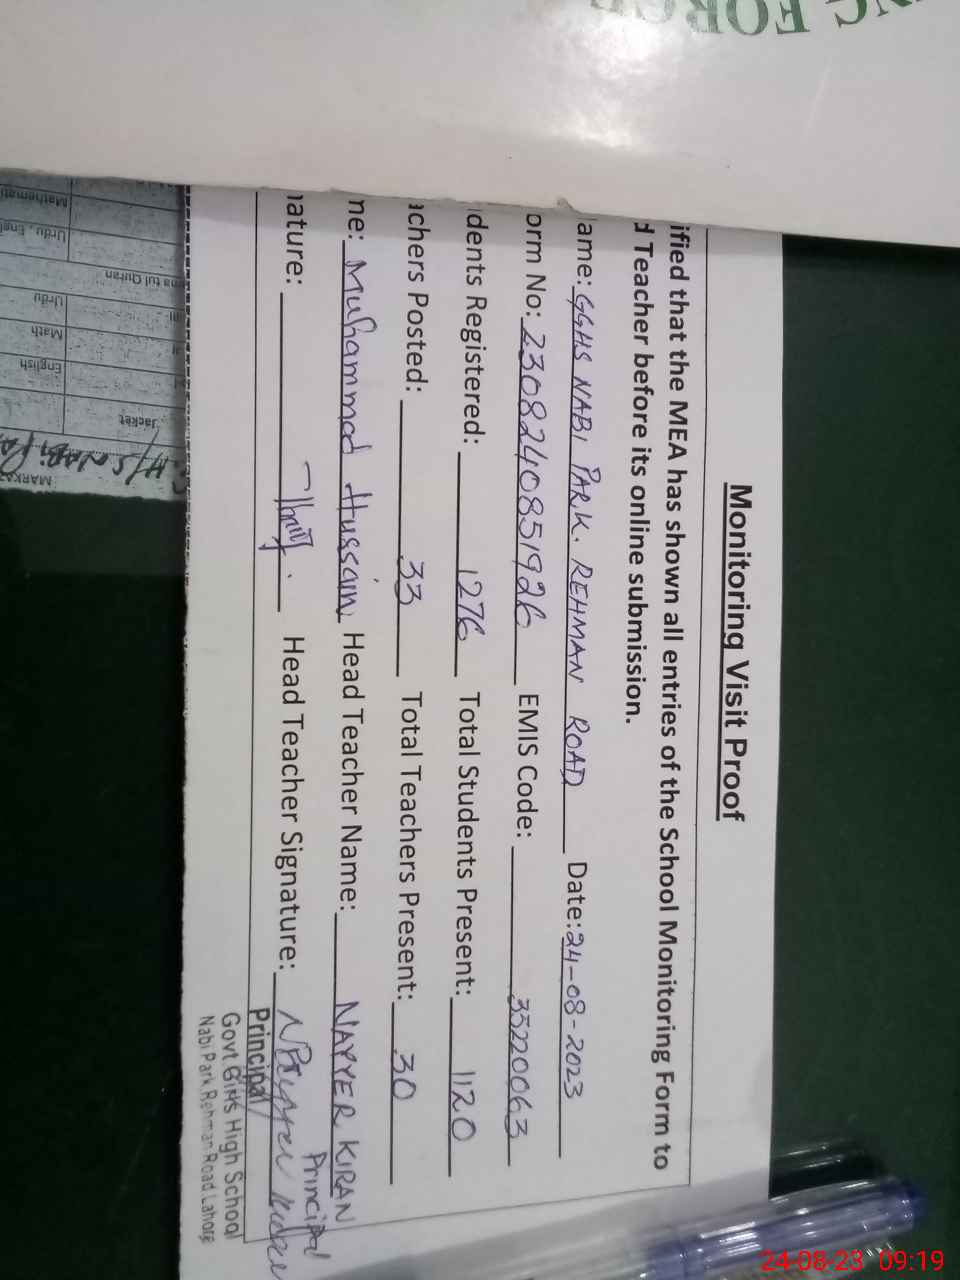 Monitoring Visit Proof
ified that the MEA has shown all entries of the School Monitoring Form to
d Teacher before its online submission.
ame: GGHS NABI PARK. REHMAN ROAD Date: 24-08-2023
orm No: 2308240851926 EMIS Code: 35220063
dents Registered: 1276 Total Students Present: 1120
achers Posted: 33 Total Teachers Present: 30
me: Muhammad Hussain Head Teacher Name: NAYYER KIRAN
Principal
nature: Head Teacher Signature:
Principal
Govt Girls High School
Nabi Park Rehman Road Lahore
NG FORCE
Mathemati
Urdu, Engl
na tul Quran
Urdu
Math
English
Jacket
MARKA
24-08-23 09:19